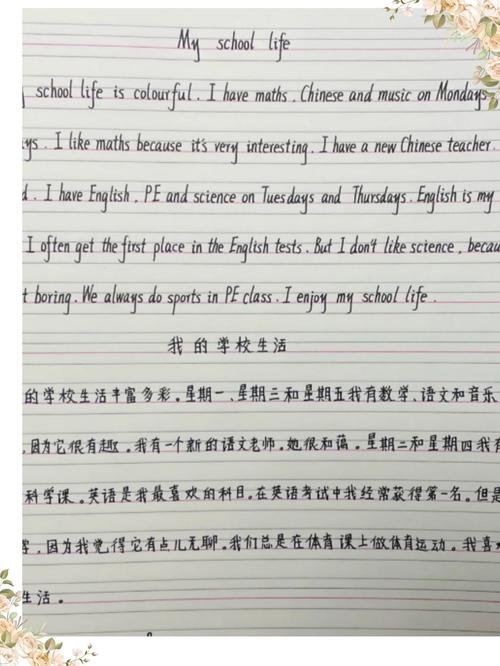 My school life
school life is colourful. I have maths, Chinese and music on Mondays,
I like maths because it's very interesting. I have a new Chinese teacher.
I have English, PE and science on Tuesdays and Thursdays. English is my
I often get the first place in the English tests. But I don't like science,
boring. We always do sports in PE class. I enjoy my school life.
我的学校生活
的学校生活丰富多彩。星期一、星期三和星期五我有数学、语文和音乐
因为它很有趣。我有一个新的语文老师。她很和蔼。星期二和星期四我有
科学课。英语是我最喜欢的科目。在英语考试中我经常获得第一名。但是
因为我觉得它有点儿无聊。我们总是在体育课上做体育运动。我喜
生活。